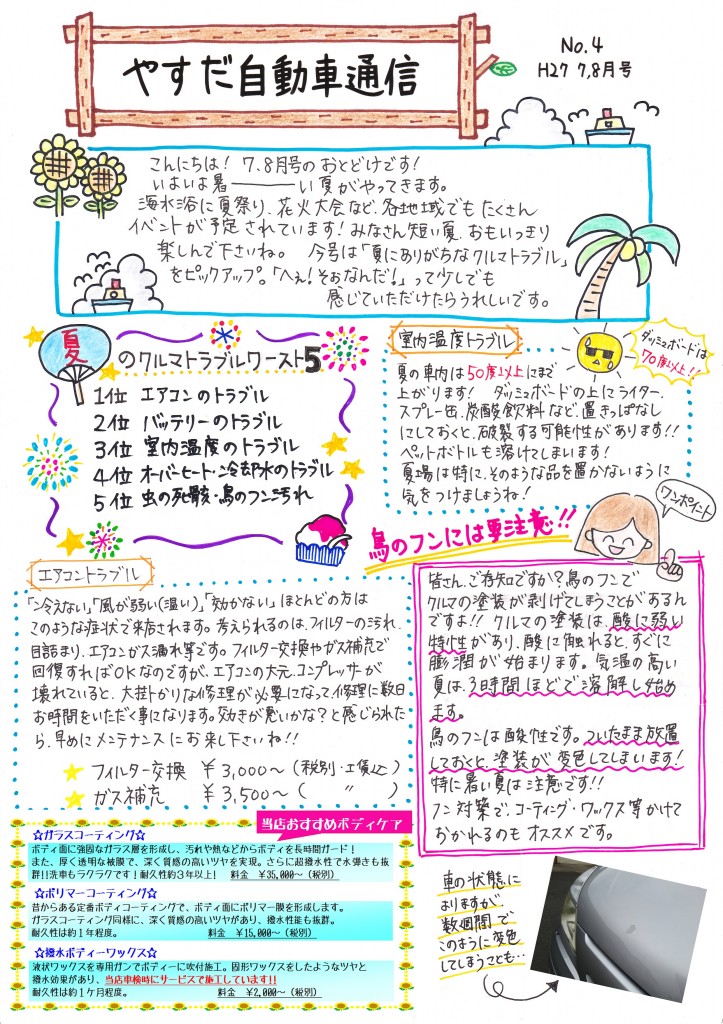 やすだ自動車通信
No.4
H27 7,8月号
こんにちは! 7.8月号のおとどけです!
いよいよ暑――――い夏がやってきます。
海水浴に夏祭り、花火大会など、各地域でもたくさん
イベントが予定されています!みなさん短い夏、おもいっきり
楽しんで下さいね。 今号は「夏にありがちなクルマトラブル」
をピックアップ。「へぇ!そぉなんだ!」って少しでも
感じていただけたらうれしいです。
夏のクルマトラブルワースト5
1位 エアコンのトラブル
2位 バッテリーのトラブル
3位 室内温度のトラブル
4位 オーバーヒート・冷却水のトラブル
5位 虫の死骸・鳥のフン汚れ
室内温度トラブル
ダッシュボードは
70度以上!!
夏の車内は50度以上にまで
上がります! ダッシュボードの上にライター、
スプレー缶、炭酸飲料など、置きっぱなし
にしておくと、破裂する可能性があります!!
ペットボトルも溶けてしまいます!
夏場は特に、そのような品を置かないように
気をつけましょうね!
エアコントラブル
「冷えない」「風が弱い(温い)」「効かない」ほとんどの方は
このような症状で来店されます。考えられるのは、フィルターの汚れ、
目詰まり、エアコンガス漏れ等です。フィルター交換やガス補充で
回復すればOKなのですが、エアコンの大元、コンプレッサーが
壊れていると、大掛かりな修理が必要になって修理に数日
お時間をいただく事になります。効きが悪いかな?と感じられた
ら、早めにメンテナンスにお来し下さいね!!
★フィルター交換 ¥3,000〜(税別・工賃込)
★ガス補充 ¥3,500〜( 〃 )
鳥のフンには要注意!!
ワンポイント
皆さん、ご存知ですか?鳥のフンで
クルマの塗装が剥げてしまうことがあるん
ですよ!! クルマの塗装は、酸に弱い
特性があり、酸に触れると、すぐに
膨潤が始まります。気温の高い
夏は、3時間ほどで溶解し始め
ます。
鳥のフンは酸性です。ついたまま放置
しておくと、塗装が変色してしまいます!
特に暑い夏は注意です!!
フン対策で、コーティング・ワックス等かけて
おかれるのもオススメです。
当店おすすめボディケア
☆ガラスコーティング☆
ボディ面に強固なガラス層を形成し、汚れや熱などからボディを長時間ガード!
また、厚く透明な被膜で、深く質感の高いツヤを実現。さらに超撥水性で水弾きも抜
群!!洗車もラクラクです!耐久性約3年以上! 料金 ¥35,000〜(税別)
☆ポリマーコーティング☆
昔からある定番ボディコーティングで、ボディ面にポリマー膜を形成します。
ガラスコーティング同様に、深く質感の高いツヤがあり、撥水性能も抜群。
耐久性は約1年程度。 料金 ¥15,000〜(税別)
☆撥水ボディーワックス☆
液状ワックスを専用ガンでボディーに吹付施工。固形ワックスをしたようなツヤと
撥水効果があり、当店車検時にサービスで施工しています!!
耐久性は約1ケ月程度。 料金 ¥2,000〜(税別)
車の状態に
よりますが、
数週間で
このように変色
してしまうことも…